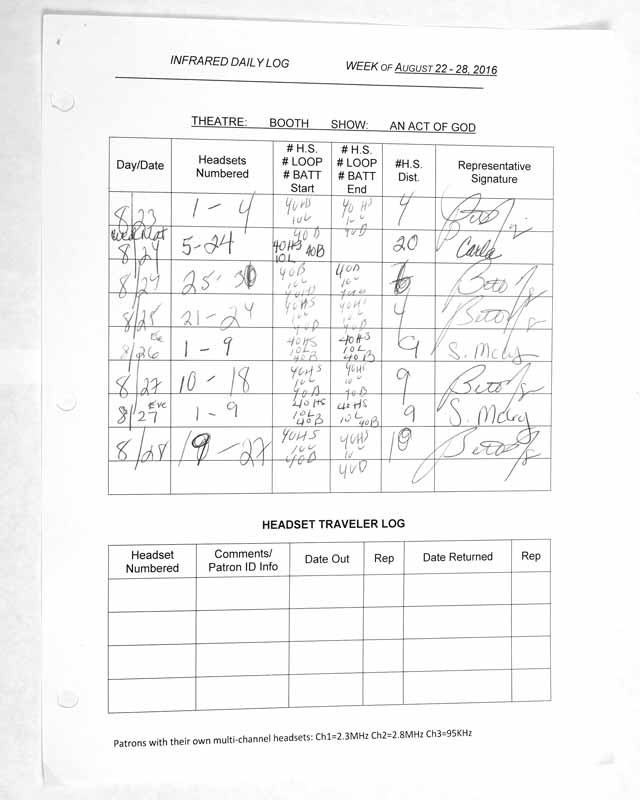 INFRARED DAILY LOG WEEK OF AUGUST 22 - 28, 2016
THEATRE: BOOTH SHOW: AN ACT OF GOD
Day/Date Headsets Numbered # H.S. # LOOP # BATT Start # H.S. # LOOP # BATT End #H.S. Dist. Representative Signature
8/23 1 - 4 40HS 10L 40B 40HS 10L 40B 4
Wed Mat 8/24 5-24 40HS 10L 40B 20 Carla
8/24 25-30 40B 10L 40HS 40B 10L 40HS 6 Beto Jr
8/25 21-24 40HS 10L 40B 40HS 10L 40B 4 Beto Jr
8/26 Eve 1 - 9 40HS 10L 40B 40HS 10L 40B 9 S. Mcky
8/27 10 - 18 40HS 10L 40B 40HS 10L 40B 9 Beto Jr
8/27 Eve 1 - 9 40HS 10L 40B 40HS 10L 40B 9 S. Mcky
8/28 19 - 27 40HS 10L 40B 40HS 10L 40B Beto Jr
HEADSET TRAVELER LOG
Headset Numbered Comments/ Patron ID Info Date Out Rep Date Returned Rep
Patrons with their own multi-channel headsets: Ch1=2.3MHz Ch2=2.8MHz Ch3=95KHz